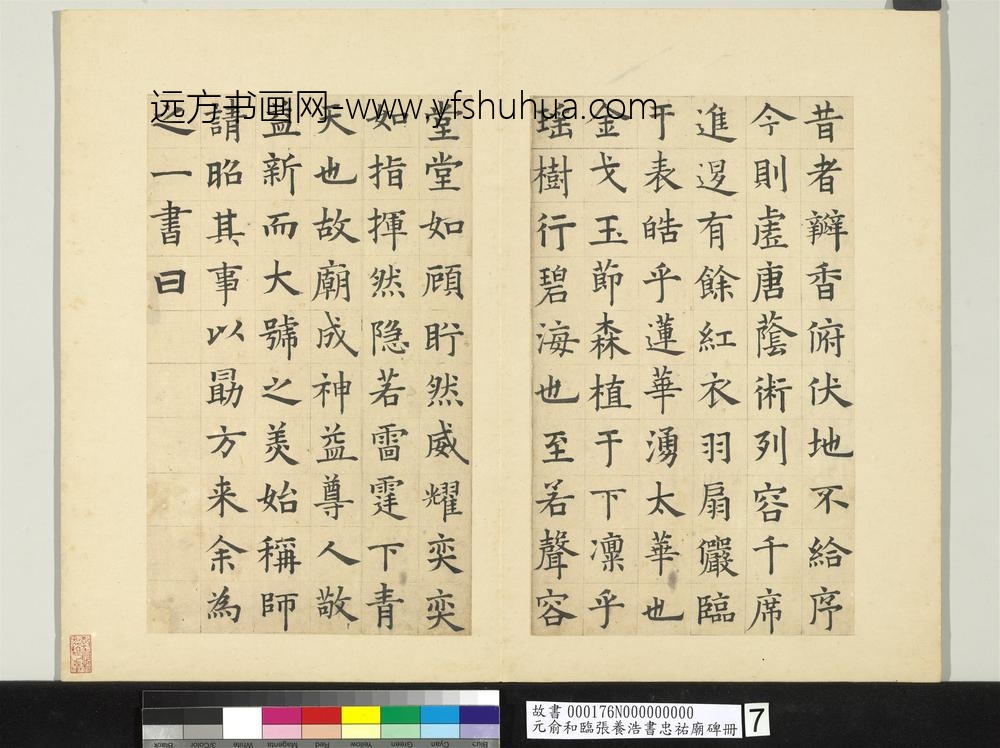 远方书画网-www.yfshuhua.com
昔者辦香俯伏地不給序
今則虗唐蔭術列容千席
進逻有餘紅衣羽扇儼臨
于表皓乎蓮華湧太華也
金戈玉節森植于下凛乎
瑤樹行碧海也至若聲容
堂堂如頎盱然威耀奕奕
如指揮然隐若雷霆下青
天也故廟成神益尊人敬
益新而大號之美始稱師
請昭其事以勗方来余為
之一書曰
故書 000176N000000000
元俞和臨張養浩書忠祐廟碑冊
7